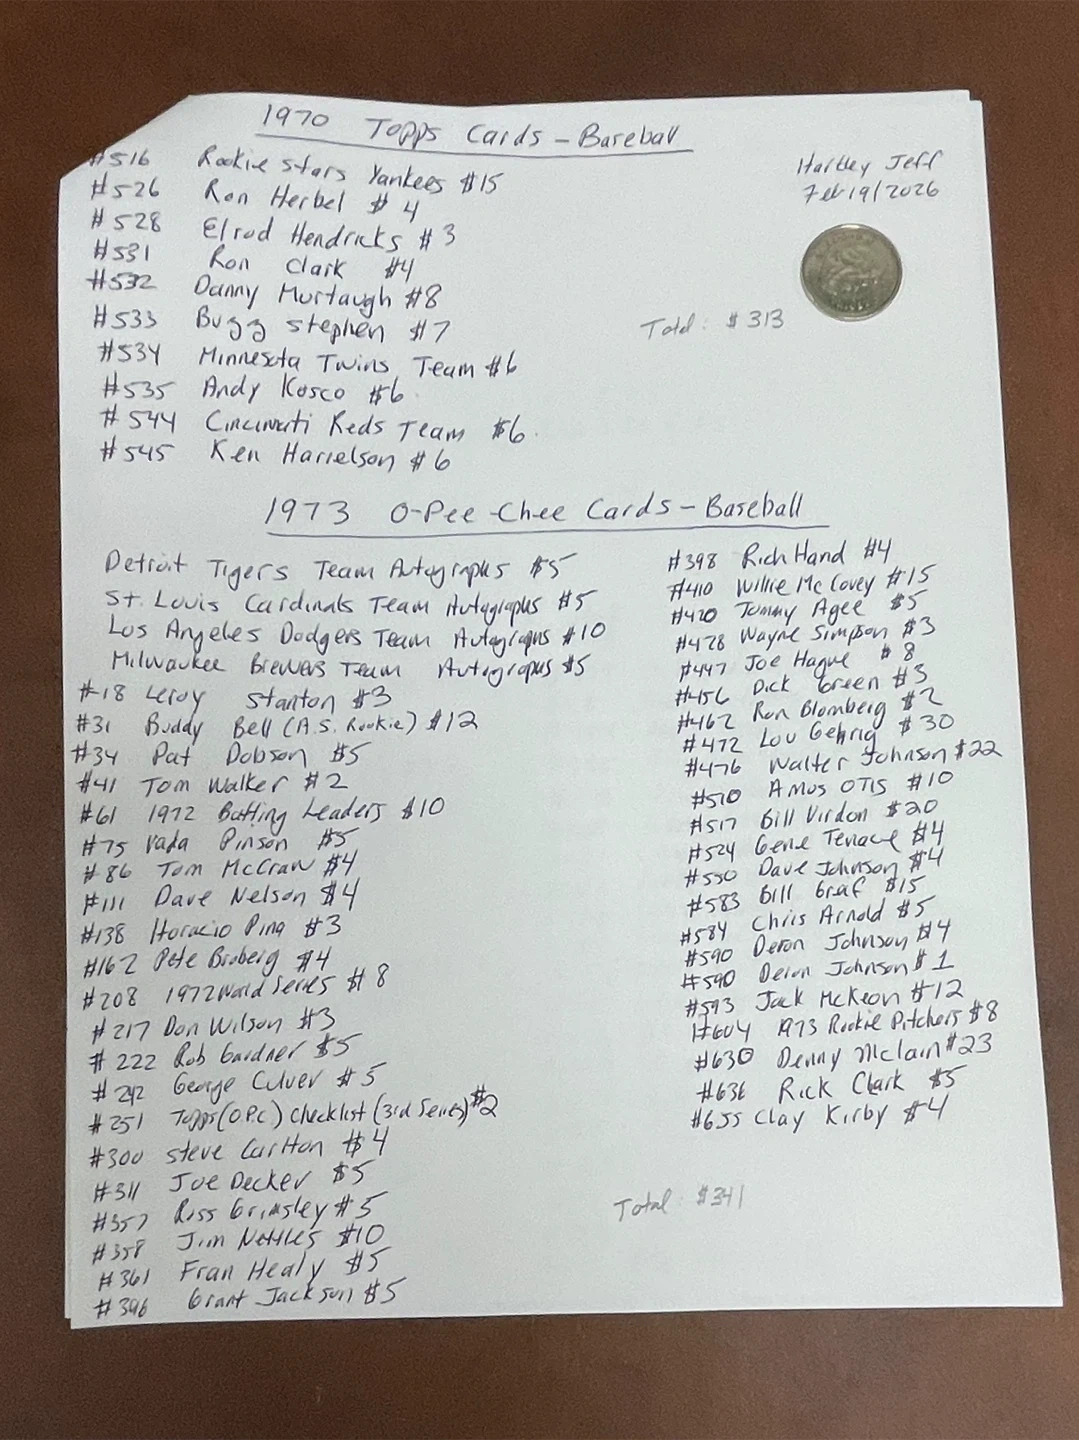 1970 Topps Cards - Baseball
Hartley Jeff
Feb 19/2026
#516 Rookie Stars Yankees $15
#526 Ron Herbel $4
#528 Elrod Hendricks $3
#531 Ron Clark $4
#532 Danny Murtaugh $8
#533 Buzz Stephen $7
#534 Minnesota Twins Team $6
#535 Andy Kosco $6
#544 Cincinnati Reds Team $6
#545 Ken Harrelson $6
Total: $313
1973 O-Pee-Chee Cards - Baseball
Detroit Tigers Team Autographs $5
St. Louis Cardinals Team Autographs $5
Los Angeles Dodgers Team Autographs $10
Milwaukee Brewers Team Autographs $5
#18 Leroy Stanton $3
#31 Buddy Bell (A.S. Rookie) $12
#34 Pat Dobson $5
#41 Tom Walker $2
#61 1972 Batting Leaders $10
#75 Vada Pinson $5
#86 Tom McCraw $4
#111 Dave Nelson $4
#138 Horacio Pina $3
#162 Pete Broberg $4
#208 1972 World Series $8
#217 Don Wilson $3
#222 Rob Gardner $5
#242 George Culver $5
#251 Topps (OPC) Checklist (3rd Series) $2
#300 Steve Carlton $4
#311 Joe Decker $5
#357 Ross Grimsley $5
#358 Jim Nettles $10
#361 Fran Healy $5
#396 Grant Jackson $5
#398 Rich Hand $4
#410 Willie McCovey $15
#420 Tommy Agee $5
#428 Wayne Simpson $3
#447 Joe Hague $8
#456 Dick Green $3
#462 Ron Blomberg $2
#472 Lou Gehrig $30
#476 Walter Johnson $22
#510 Amos Otis $10
#517 Bill Virdon $20
#524 Gene Tenace $4
#550 Dave Johnson $4
#583 Bill Graf $15
#584 Chris Arnold $5
#590 Deron Johnson $4
#590 Deron Johnson $1
#593 Jack McKeon $12
#604 1973 Rookie Pitchers $8
#630 Denny Mclain $23
#636 Rick Clark $5
#655 Clay Kirby $4
Total: $341